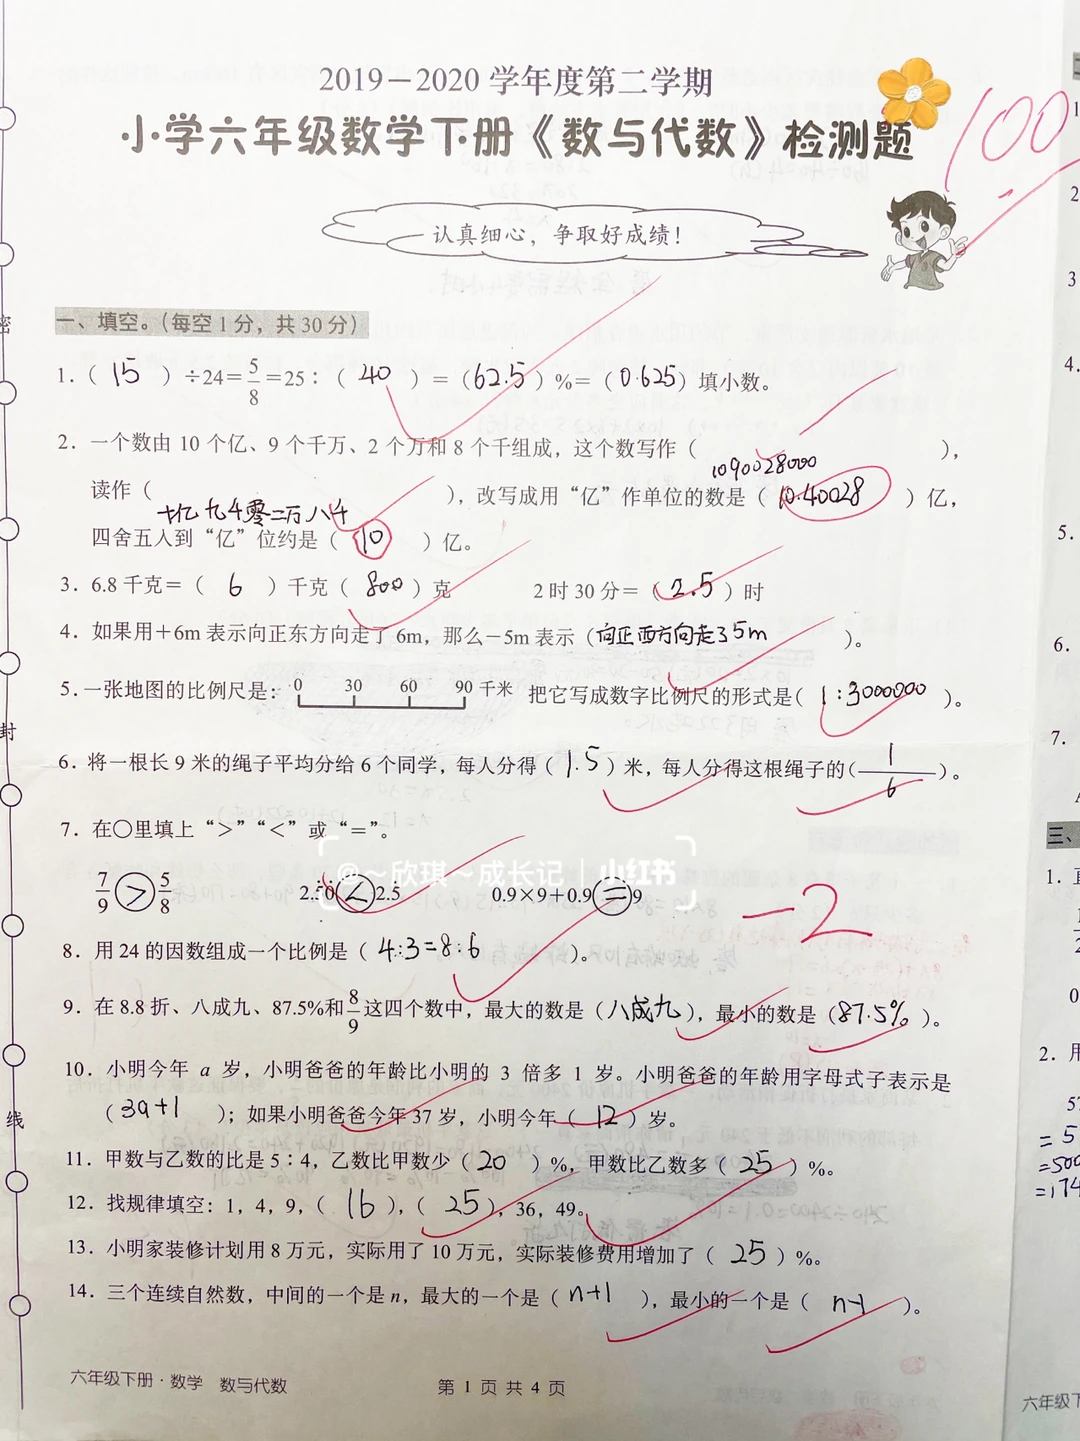 2019－2020 学年度第二学期
小学六年级数学下册《数与代数》检测题
100
认真细心，争取好成绩！
一、填空。（每空 1 分，共 30 分）
1.（ 15 ）÷24＝5/8＝25：（ 40 ）＝（62.5）%＝（0.625）填小数。
2．一个数由 10 个亿、9 个千万、2 个万和 8 个千组成，这个数写作（ 1090028000 ），
读作（ 十亿九千零二万八千 ），改写成用“亿”作单位的数是（ 10.40028 ）亿，
四舍五入到“亿”位约是（ 10 ）亿。
3．6.8 千克＝（ 6 ）千克（ 800 ）克 2 时 30 分＝（ 2.5 ）时
4．如果用＋6m 表示向正东方向走了 6m，那么－5m 表示（向正西方向走了5m ）。
5．一张地图的比例尺是： 0 30 60 90 千米 把它写成数字比例尺的形式是（ 1:3000000 ）。
6．将一根长 9 米的绳子平均分给 6 个同学，每人分得（ 1.5 ）米，每人分得这根绳子的（ 1/6 ）。
7．在○里填上“>”“<”或“＝”。
@～欣琪～成长记 小红书
7/9 > 5/8 2.5̇0̇ < 2.5 0.9×9＋0.9 = 9
－2
8．用 24 的因数组成一个比例是（ 4:3=8:6 ）。
9．在 8.8 折、八成九、87.5%和 8/9 这四个数中，最大的数是（八成九），最小的数是（87.5%）。
10．小明今年 a 岁，小明爸爸的年龄比小明的 3 倍多 1 岁。小明爸爸的年龄用字母式子表示是
（ 3a+1 ）；如果小明爸爸今年 37 岁，小明今年（ 12 ）岁。
11．甲数与乙数的比是 5∶4，乙数比甲数少（ 20 ）%，甲数比乙数多（ 25 ）%。
12．找规律填空：1，4，9，（ 16 ），（ 25 ），36，49。
13．小明家装修计划用 8 万元，实际用了 10 万元，实际装修费用增加了（ 25 ）%。
14．三个连续自然数，中间的一个是 n，最大的一个是（ n+1 ），最小的一个是（ n-1 ）。
六年级下册·数学 数与代数
第 1 页 共 4 页
密
封
线
1
2
3
4.
5.
6.
7.
三、
1．
2．用
=5
=500
=174
六年级下